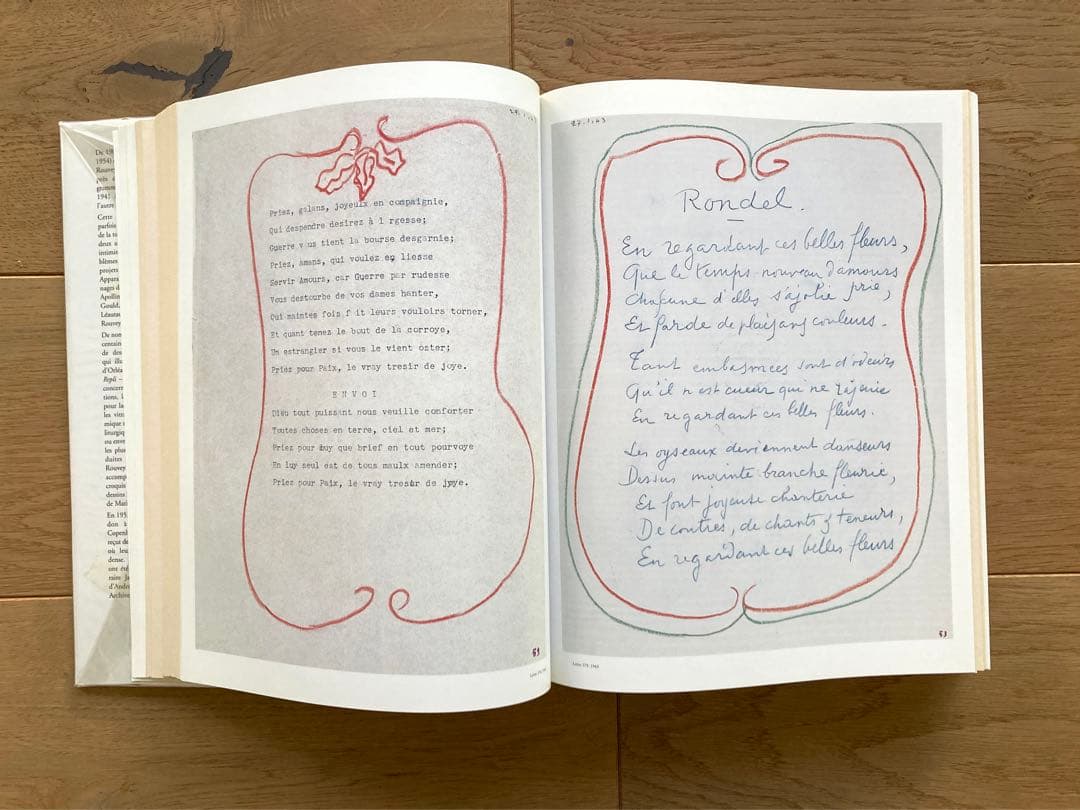 De 19
1954)
Rouvey
gramme
1941
l'autre
Cette
parfois
de la to
deux a
blèmes
projets
Appara
nages d
Apollin
Gould,
Léautau
Rouvey
De non
centain
de des
qui illu
d'Orléa
Repli –
concern
tions, l
pour la
les vitr
mique
liturgiq
ou enve
les plus
duites
Rouvey
accomp
croquis
dessins
de Mati
En 195
don à
Copenh
reçut de
où leu
dense.
ont été
raire ja
d'André
Archive
Priez, galans, joyeulx en compaignie,
Qui despendre desirez à l rgesse;
Guerre v us tient la bourse desgarnie;
Priez, Amans, qui voulez en liesse
Servir Amours, car Guerre par rudesse
Vous destourbe de vos dames hanter,
Qui maintes fois f it leurs vouloirs torner,
Et quant tenez le bout de la corroye,
Un estrangier si vous le vient oster;
Priez pour Paix, le vray tresir de joye.
ENVOI
Dieu tout puissant nous veuille conforter
Toutes choses en terre, ciel et mer;
Priez pour luy que brief en tout pourvoye
En luy seul est de tous maulx amender;
Priez pour Paix, le vray tresor de joye.
27.1.43
Rondel.
En regardant ces belles fleurs,
Que le temps nouveau d'amours prie,
Chascune d'elles s'ajolie
Et farde de plaisans couleurs.
Tant embasmées sont d'odeurs
Qu'il n'est cueur qui ne rajeunie
En regardant ces belles fleurs.
Les oyseaux deviennent danseurs
Dessus mainte branche fleurie,
Et font joyeuse chanterie
De contres, de chants & teneurs,
En regardant ces belles fleurs